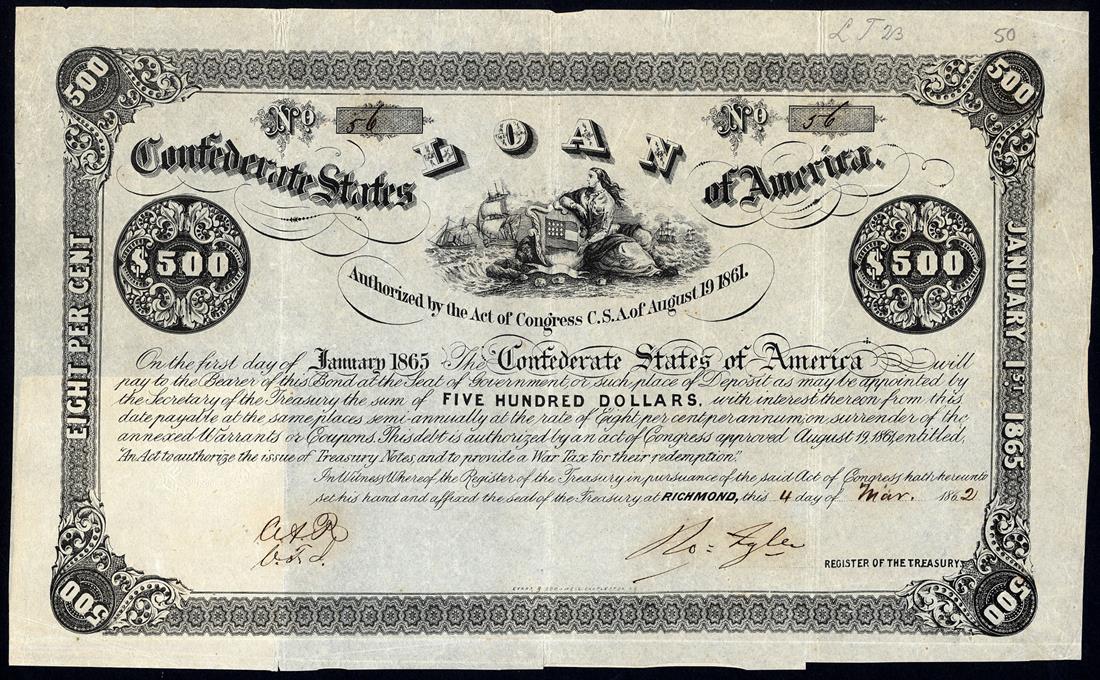 L T 23
50
500
500
No 56
LOAN
No 56
Confederate States
of America.
$500
$500
Authorized by the Act of Congress C.S.A. of August 19 1861.
EIGHT PER CENT
JANUARY 1ST 1865
On the first day of January 1865 The Confederate States of America will
pay to the Bearer of this Bond at the Seat of Government or such place of Deposit as may be appointed by
the Secretary of the Treasury the sum of FIVE HUNDRED DOLLARS, with interest thereon from this
date payable at the same places semi-annually at the rate of Eight per cent per annum, on surrender of the
annexed Warrants or Coupons. This debt is authorized by an act of Congress approved August 19, 1861, entitled,
"An Act to authorize the issue of Treasury Notes, and to provide a War Tax for their redemption."
In Witness Whereof, the Register of the Treasury, in pursuance of the said Act of Congress, hath hereunto
set his hand and affixed the seal of the Treasury at RICHMOND, this 4 day of Mar. 1862
Ro: Tyler
REGISTER OF THE TREASURY.
500
500